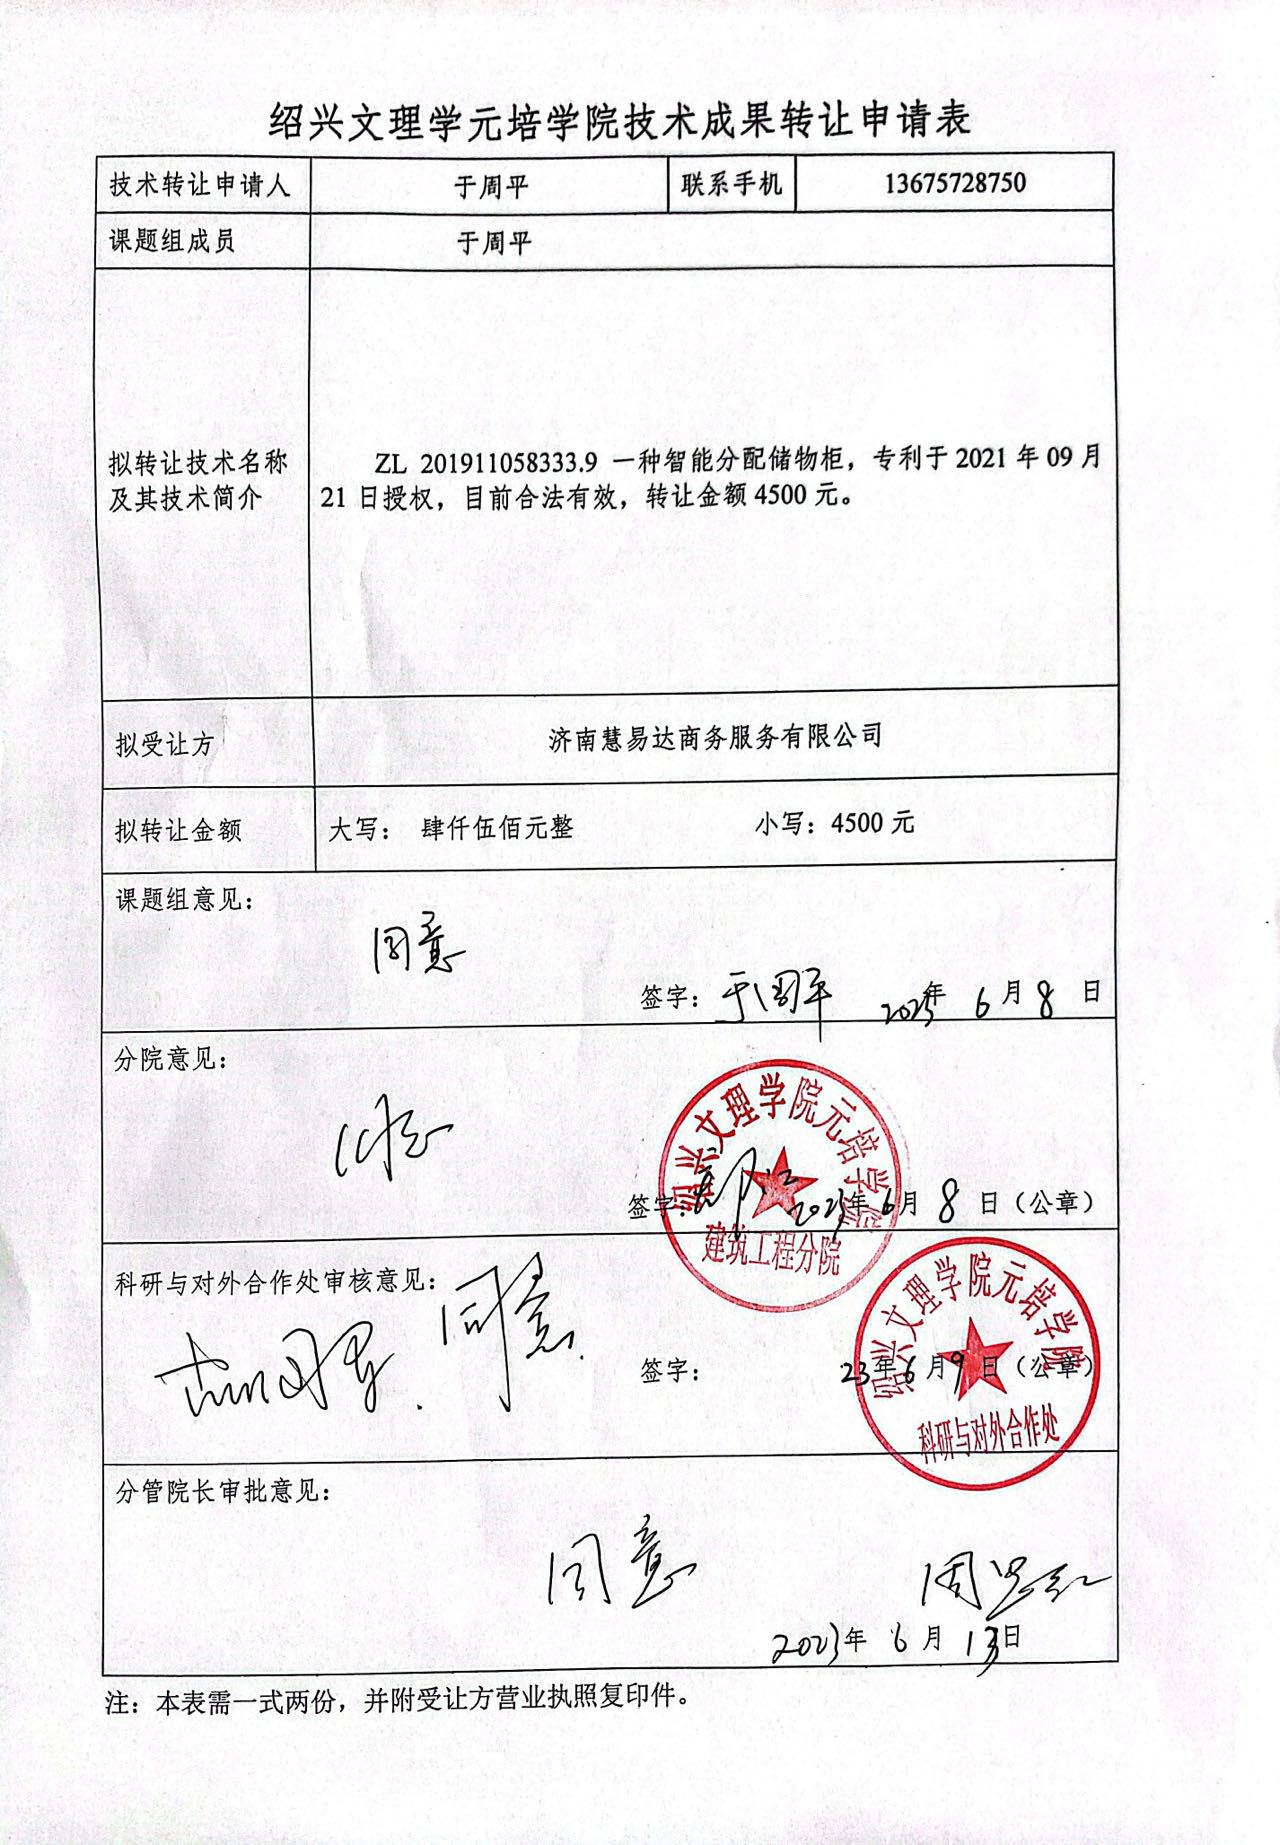 绍兴文理学元培学院技术成果转让申请表
技术转让申请人 于周平 联系手机 13675728750
课题组成员 于周平
拟转让技术名称
及其技术简介
ZL 201911058333.9 一种智能分配储物柜，专利于 2021 年 09 月
21 日授权，目前合法有效，转让金额 4500 元。
拟受让方 济南慧易达商务服务有限公司
拟转让金额 大写： 肆仟伍佰元整 小写：4500 元
课题组意见：
同意
签字：于周平 2023年 6 月 8 日
分院意见：
同意
绍兴文理学院元培学院
签字： 2023年 6 月 8 日（公章）
建筑工程分院
科研与对外合作处审核意见：
同意
绍兴文理学院元培学院
签字： 23年 6 月 9 日（公章）
科研与对外合作处
分管院长审批意见：
同意
2023年 6 月 13日
注：本表需一式两份，并附受让方营业执照复印件。